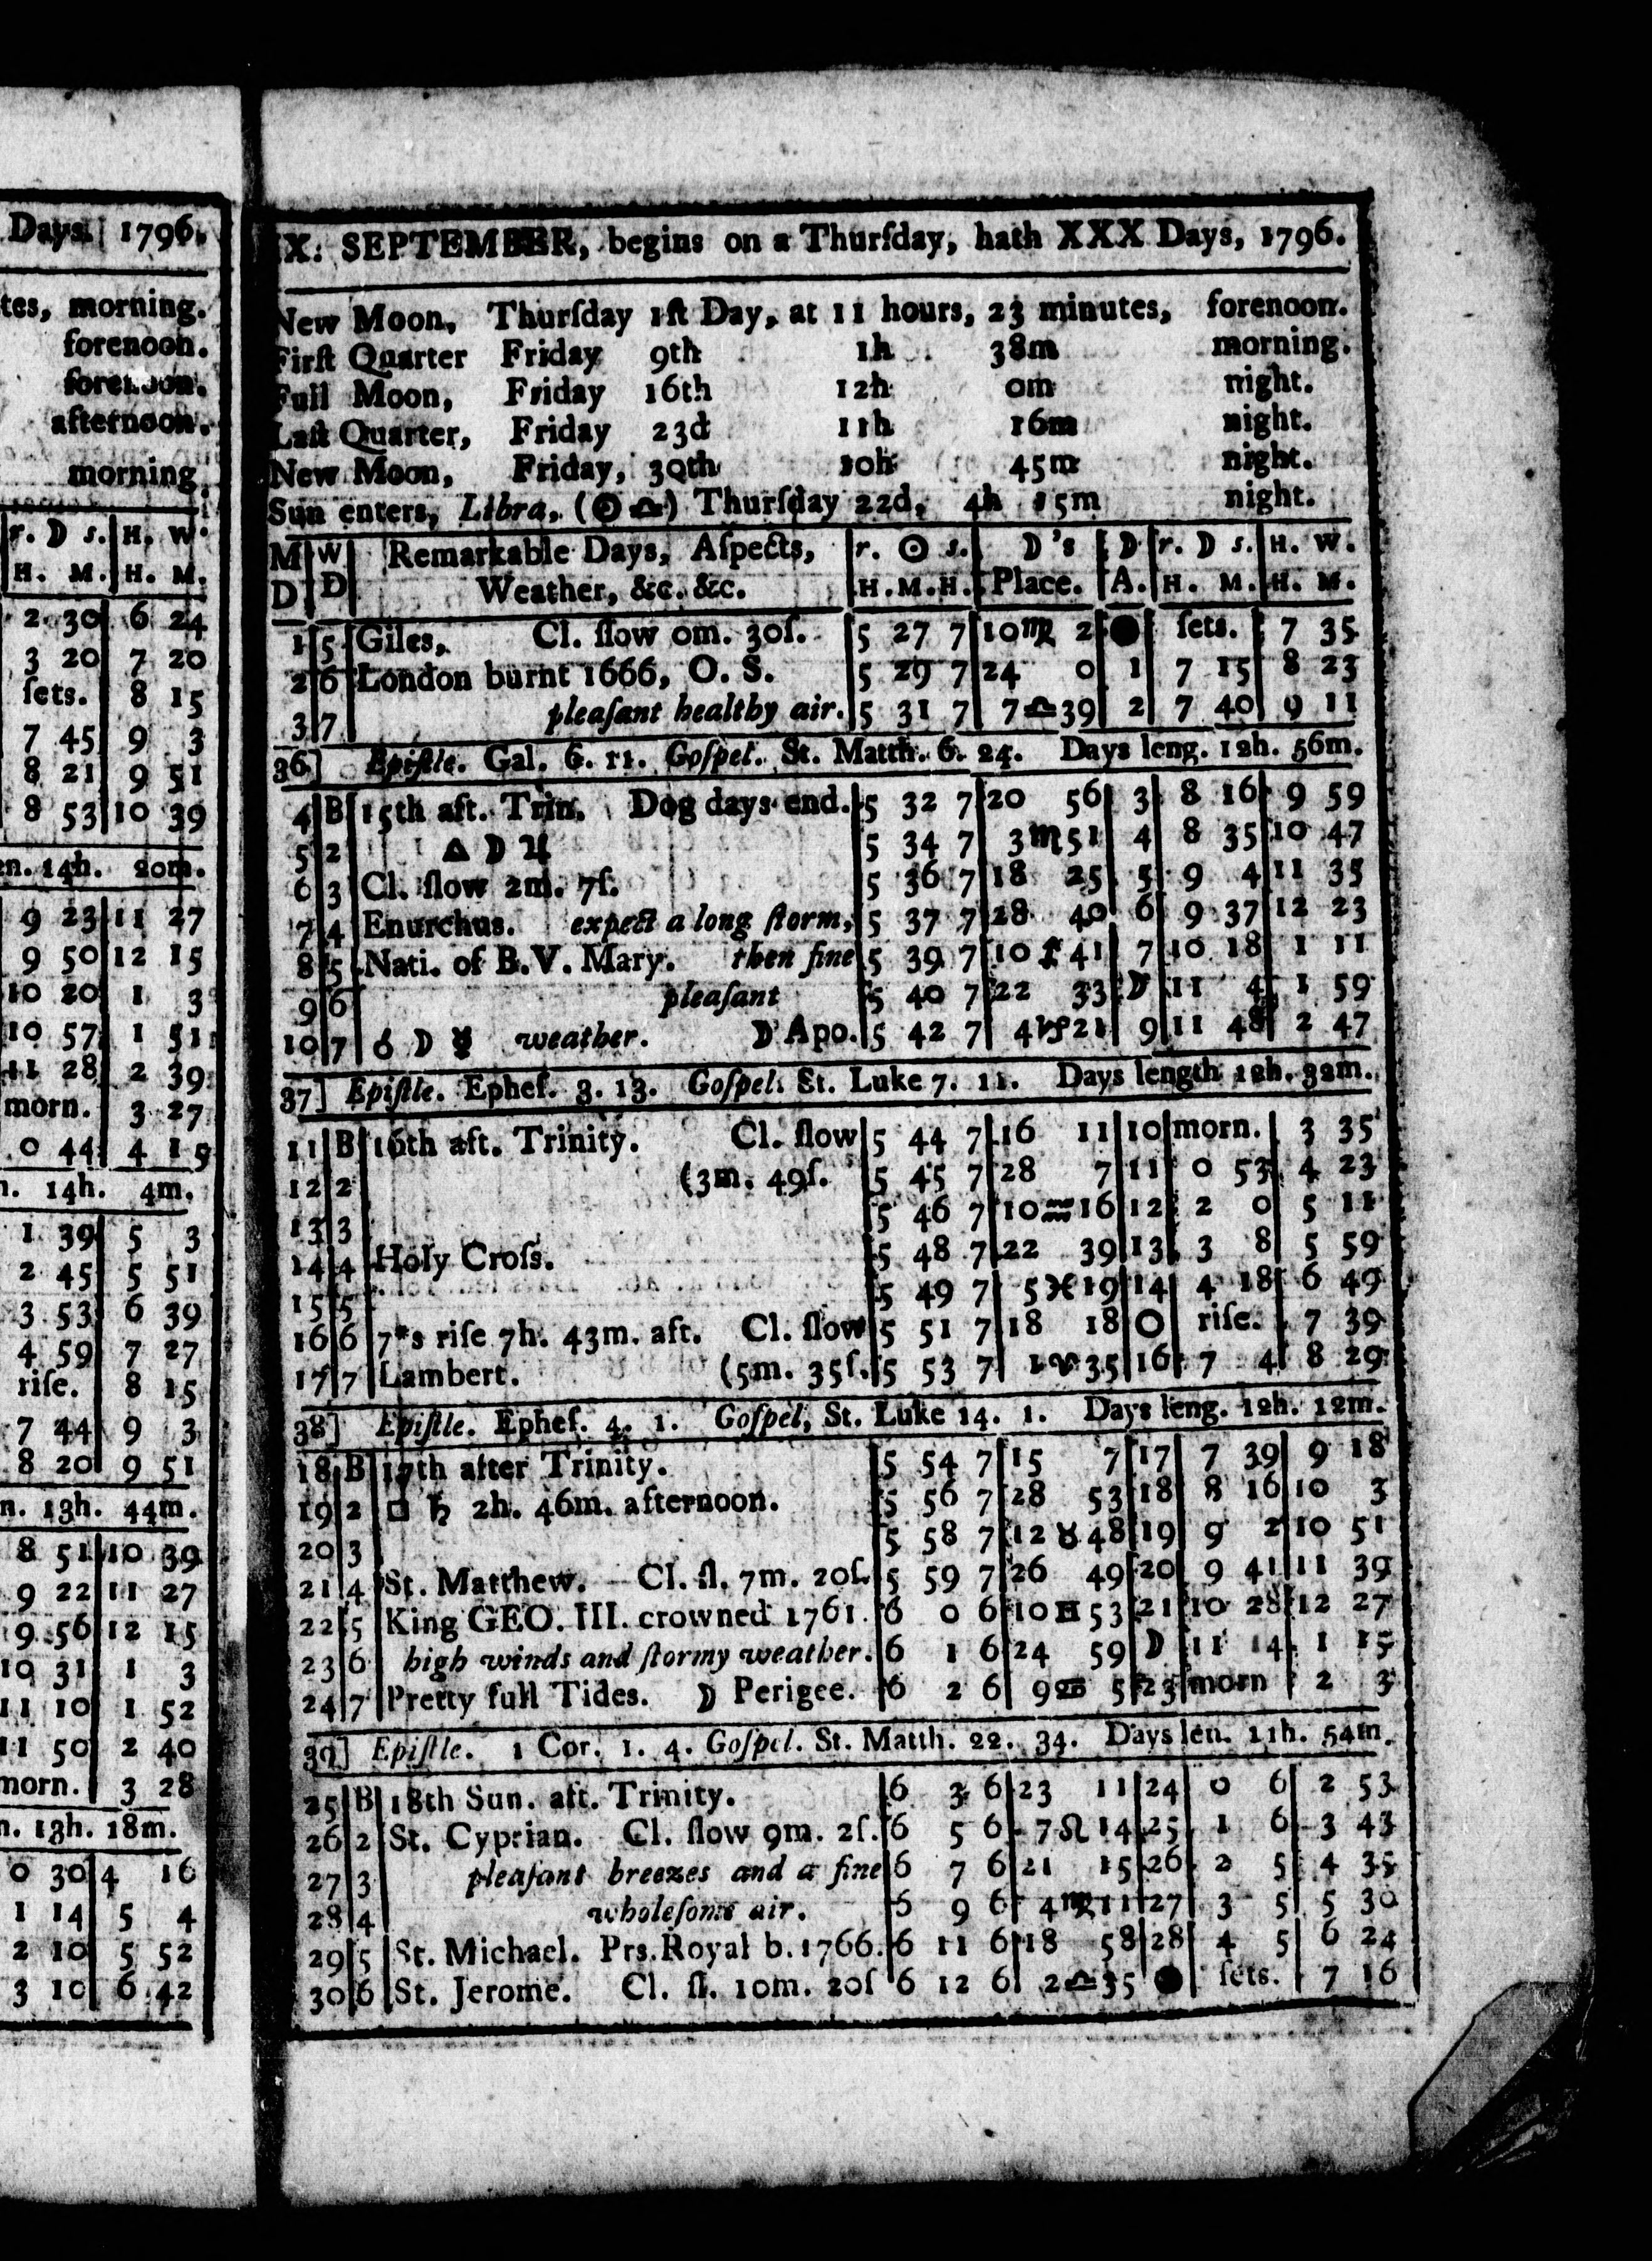 Days. 1796.
tes, morning.
forenoon.
forenoon.
afternoon.
morning
r. ☽ s. H. W.
H. M. H. M.
2 30 6 24
3 20 7 20
ſets. 8 15
7 45 9 3
8 21 9 51
8 53 10 39
n. 14h. 20m.
9 23 11 27
9 50 12 15
10 20 1 3
10 57 1 51
11 28 2 39
morn. 3 27
0 44 4 15
. 14h. 4m.
1 39 5 3
2 45 5 51
3 53 6 39
4 59 7 27
riſe. 8 15
7 44 9 3
8 20 9 51
n. 13h. 44m.
8 51 10 39
9 22 11 27
9 56 12 15
10 31 1 3
11 10 1 52
11 50 2 40
morn. 3 28
n. 13h. 18m.
0 30 4 16
1 14 5 4
2 10 5 52
3 10 6 42
IX. SEPTEMBER, begins on a Thurſday, hath XXX Days, 1796.
New Moon, Thurſday 1ſt Day, at 11 hours, 23 minutes, forenoon.
Firſt Quarter Friday 9th 1h 38m morning.
Full Moon, Friday 16th 12h 0m night.
Laſt Quarter, Friday 23d 11h 16m night.
New Moon, Friday, 30th 10h 45m night.
Sun enters, Libra, (☉ ♎) Thurſday 22d, 4h 15m night.
M W Remarkable Days, Aſpects, r. ☉ s. ☽'s ☽ r. ☽ s. H. W.
D D Weather, &c. &c. H. M. H. Place. A. H. M. H. M.
1 5 Giles, Cl. ſlow 0m. 30ſ. 5 27 7 10♍ 2 ● ſets. 7 35
2 6 London burnt 1666, O. S. 5 29 7 24 0 1 7 15 8 23
3 7 pleaſant healthy air. 5 31 7 7♎39 2 7 40 9 11
36] Epiſtle. Gal. 6. 11. Goſpel. St. Matth. 6. 24. Days leng. 12h. 56m.
4 B 15th aft. Trin. Dog days end. 5 32 7 20 56 3 8 16 9 59
5 2 △ ☽ ♃ 5 34 7 3♏51 4 8 35 10 47
6 3 Cl. ſlow 2m. 7ſ. 5 36 7 18 25 5 9 4 11 35
7 4 Enurchus. expect a long ſtorm, 5 37 7 28 40 6 9 37 12 23
8 5 Nati. of B. V. Mary. then fine 5 39 7 10♐41 7 10 18 1 11
9 6 pleaſant 5 40 7 22 33 ☽ 11 4 1 59
10 7 ☌ ☽ ☿ weather. ☽ Apo. 5 42 7 4♑21 9 11 48 2 47
37] Epiſtle. Epheſ. 3. 13. Goſpel. St. Luke 7. 11. Days length 12h. 32m.
11 B 16th aft. Trinity. Cl. ſlow 5 44 7 16 11 10 morn. 3 35
12 2 (3m. 49ſ. 5 45 7 28 7 11 0 53 4 23
13 3 5 46 7 10♒16 12 2 0 5 11
14 4 Holy Croſs. 5 48 7 22 39 13 3 8 5 59
15 5 5 49 7 5♓19 14 4 18 6 49
16 6 7*s riſe 7h. 43m. aft. Cl. ſlow 5 51 7 18 18 ○ riſe. 7 39
17 7 Lambert. (5m. 35ſ. 5 53 7 1♈35 16 7 4 8 29
38] Epiſtle. Epheſ. 4. 1. Goſpel, St. Luke 14. 1. Days leng. 12h. 12m.
18 B 17th after Trinity. 5 54 7 15 7 17 7 39 9 18
19 2 □ ♄ 2h. 46m. afternoon. 5 56 7 28 53 18 8 16 10 3
20 3 5 58 7 12♉48 19 9 2 10 51
21 4 St. Matthew. Cl. ſl. 7m. 20ſ. 5 59 7 26 49 20 9 41 11 39
22 5 King GEO. III. crowned 1761. 6 0 6 10♊53 21 10 28 12 27
23 6 high winds and ſtormy weather. 6 1 6 24 59 ☽ 11 14 1 15
24 7 Pretty full Tides. ☽ Perigee. 6 2 6 9♋ 5 23 morn 2 3
39] Epiſtle. 1 Cor. 1. 4. Goſpel. St. Matth. 22. 34. Days len. 11h. 54m.
25 B 18th Sun. aft. Trinity. 6 3 6 23 11 24 0 6 2 53
26 2 St. Cyprian. Cl. ſlow 9m. 2ſ. 6 5 6 7♌14 25 1 6 3 43
27 3 pleaſant breezes and a fine 6 7 6 21 15 26 2 5 4 35
28 4 wholeſome air. 6 9 6 4♍11 27 3 5 5 30
29 5 St. Michael. Prs. Royal b. 1766. 6 11 6 18 58 28 4 5 6 24
30 6 St. Jerome. Cl. ſl. 10m. 20ſ 6 12 6 2♎35 ● ſets. 7 16